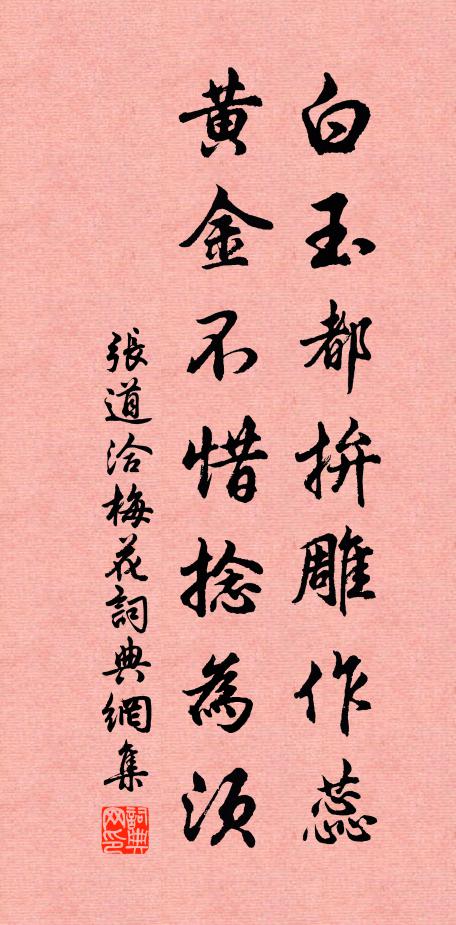 白玉都拚雕作蕊
黄金不惜捻為須
張道洽梅花詞典網集
詞典网印